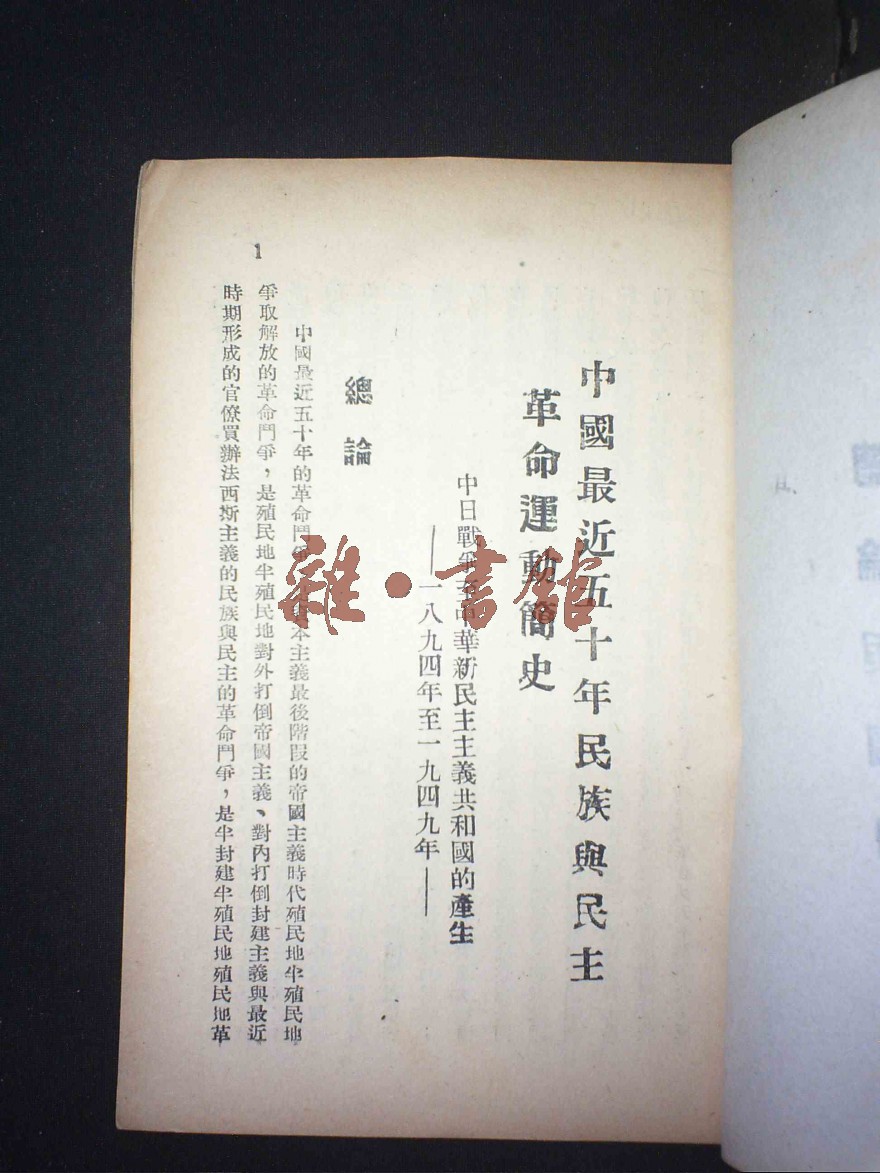 中國最近五十年民族與民主
革命運動簡史
中日戰爭至中華新民主主義共和國的產生
——一八九四年至一九四九年——
總論
中國最近五十年的革命鬥爭 本主義最後階段的帝國主義時代殖民地半殖民地
爭取解放的革命鬥爭，是殖民地半殖民地對外打倒帝國主義、對內打倒封建主義與最近
時期形成的官僚買辦法西斯主義的民族與民主的革命鬥爭，是半封建半殖民地殖民地革
1
雜·書館